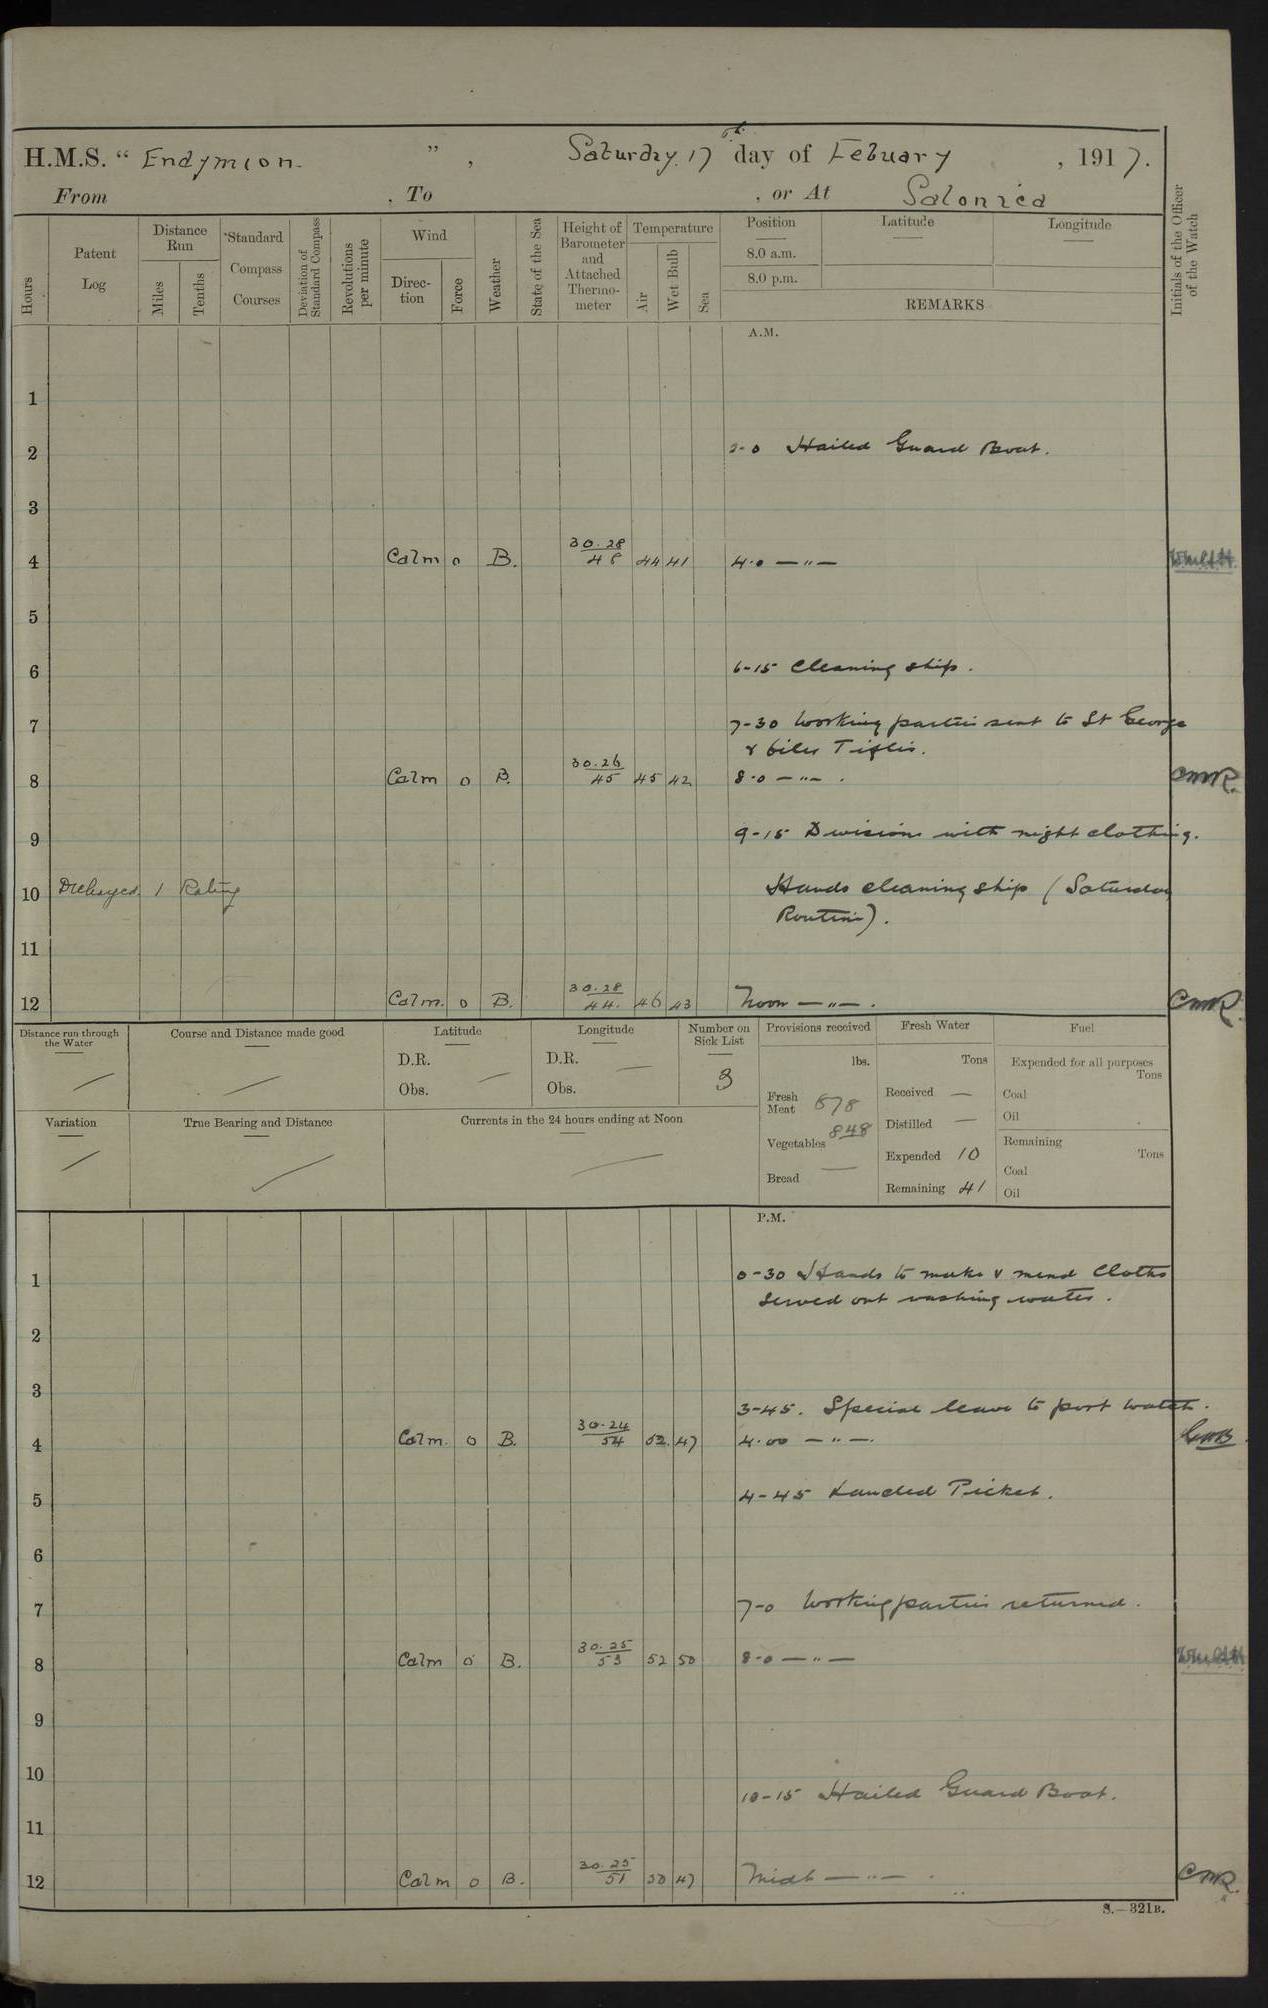 H.M.S. “ Endymion. ” , Saturday. 17th day of Febuary , 1917.
From , To , or At Salonica
Hours
Patent Log
Distance Run
Miles
Tenths
Standard Compass Courses
Deviation of Standard Compass
Revolutions per minute
Wind
Direc-tion
Force
Weather
State of the Sea
Height of Barometer and Attached Thermo-meter
Temperature
Air
Wet Bulb
Sea
Position Latitude Longitude
8.0 a.m.
8.0 p.m.
REMARKS
Initials of the Officer of the Watch
A.M.
1
2 2-0 Hailed Guard Boat.
3
4 Calm 0 B. 30.28 48 44 41 4.0 — " —
5
6 6-15 Cleaning ship.
7 7-30 Working parties sent to St George
& Tiflis.
8 Calm 0 B. 30.26 45 45 42 8.0 — " — . CMR.
9 9-15 Divisions with night clothing.
10 Discharged 1 Rating Hands cleaning ship (Saturday
Routine).
11
12 Calm. 0 B. 30.28 44. 46 43 Noon — " — . CMR.
Distance run through the Water
Course and Distance made good
Latitude
D.R.
Obs.
Longitude
D.R.
Obs.
Number on Sick List
3
Provisions received
lbs.
Fresh Meat 878
Vegetables 848
Bread —
Fresh Water
Tons
Received —
Distilled —
Expended 10
Remaining 41
Fuel
Expended for all purposes
Tons
Coal
Oil
Remaining
Tons
Coal
Oil
Variation
True Bearing and Distance
Currents in the 24 hours ending at Noon
P.M.
1 0-30 Hands to make & mend Cloths
Served out washing water.
2
3
3-45. Special leave to port watch.
4 Calm. 0 B. 30.24 54 52. 47 4.00 — " —.
5 4-45 Landed Picket.
6
7 7-0 Working parties returned.
8 Calm 0 B. 30.25 53 52 50 8.0 — " —
9
10 10-15 Hailed Guard Boat.
11
12 Calm 0 B. 30.25 51 50 47 Midt — " — . CMR.
S.—321B.